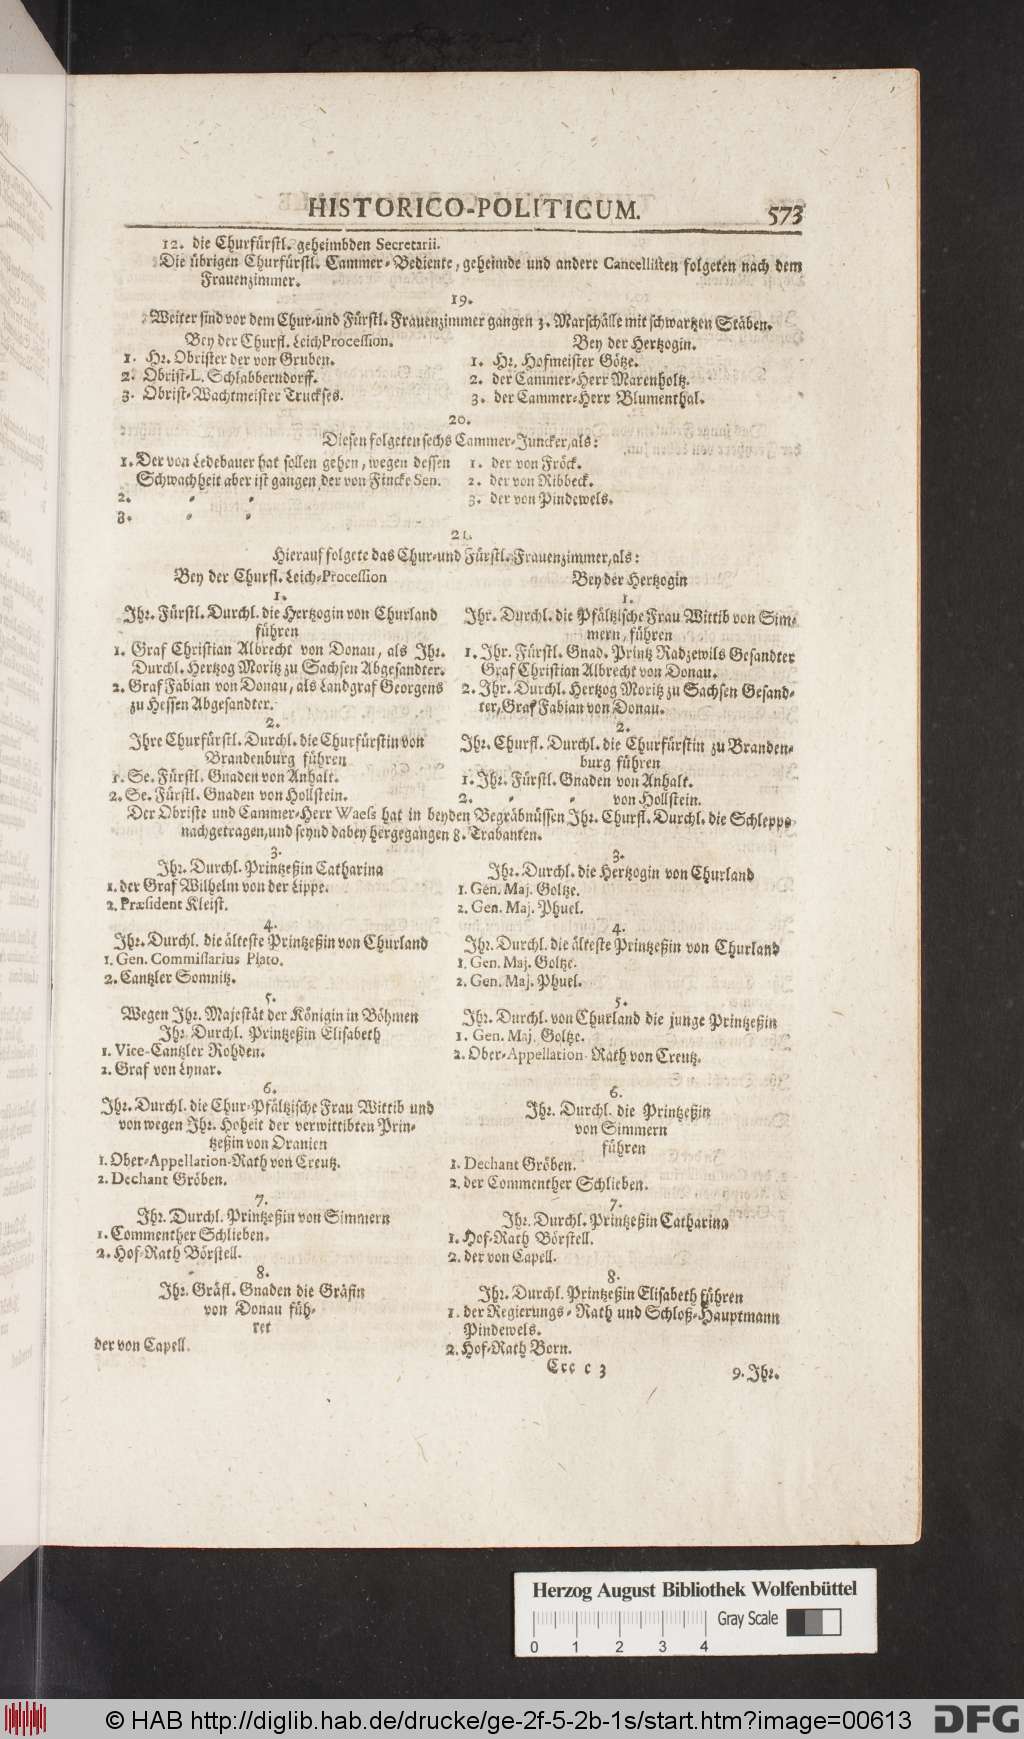 HISTORICO-POLITICUM. 573
12. die Churfürstl. geheimbden Secretarii.
Die übrigen Churfürstl. Cammer-Bediente, geheimde und andere Cancellisten folgeten nach dem
Frauenzimmer.
19.
Weiter sind vor dem Chur-und Fürstl. Frauenzimmer gangen 3. Marschälle mit schwartzen Stäben.
Bey der Churfl. Leich Procession.
1. Hr. Obrister der von Gruben.
2. Obrist-L. Schlabberndorff.
3. Obrist-Wachtmeister Truckses.
Bey der Hertzogin.
1. Hr. Hofmeister Götze.
2. der Cammer-Herr Marenholtz.
3. der Cammer-Herr Blumenthal.
20.
Diesen folgeten sechs Cammer-Juncker, als:
1. Der von Ledebauer hat sollen gehen, wegen dessen
Schwachheit aber ist gangen der von Fincke Sen.
2. " "
3. " "
1. der von Fröck.
2. der von Ribbeck.
3. der von Pindewels.
21.
Hierauf folgete das Chur-und Fürstl. Frauenzimmer, als:
Bey der Churfl. Leich-Procession
1.
Ihr. Fürstl. Durchl. die Hertzogin von Churland
führen
1. Graf Christian Albrecht von Donau, als Ihr.
Durchl. Hertzog Moritz zu Sachsen Abgesandter.
2. Graf Fabian von Donau, als Landgraf Georgens
zu Hessen Abgesandter.
2.
Ihre Churfürstl. Durchl. die Churfürstin von
Brandenburg führen
1. Se. Fürstl. Gnaden von Anhalt.
2. Se. Fürstl. Gnaden von Hollstein.
Bey der Hertzogin
1.
Ihr. Durchl. die Pfältzische Frau Wittib von Sim-
mern, führen
1. Ihr. Fürstl. Gnad. Printz Radzewils Gesandter
Graf Christian Albrecht von Donau.
2. Ihr. Durchl. Hertzog Moritz zu Sachsen Gesand-
ter, Graf Fabian von Donau.
2.
Ihr. Churfl. Durchl. die Churfürstin zu Branden-
burg führen
1. Ihr. Fürstl. Gnaden von Anhalt.
2. " " von Hollstein.
Der Obriste und Cammer-Herr Waess hat in beyden Begräbnüssen Ihr. Churfl. Durchl. die Schleppe
nachgetragen, und seynd dabey hergegangen 8. Trabanten.
3.
Ihr. Durchl. Printzeßin Catharina
1. der Graf Wilhelm von der Lippe.
2. Præsident Kleist.
4.
Ihr. Durchl. die älteste Printzeßin von Churland
1. Gen. Commissarius Plato.
2. Cantzler Somnitz.
5.
Wegen Ihr. Majestät der Königin in Böhmen
Ihr. Durchl. Printzeßin Elisabeth
1. Vice-Cantzler Rohden.
2. Graf von Lynar.
6.
Ihr. Durchl. die Chur-Pfältzische Frau Wittib und
von wegen Ihr. Hoheit der verwittibten Prin-
tzeßin von Oranien
1. Ober-Appellation-Rath von Creutz.
2. Dechant Gröben.
7.
Ihr. Durchl. Printzeßin von Simmern
1. Commenther Schlieben.
2. Hof-Rath Börstell.
8.
Ihr. Gräfl. Gnaden die Gräfin
von Donau füh-
ret
der von Capell.
3.
Ihr. Durchl. die Hertzogin von Churland
1. Gen. Maj. Goltze.
2. Gen. Maj. Phuel.
4.
Ihr. Durchl. die älteste Printzeßin von Churland
1. Gen. Maj. Goltze.
2. Gen. Maj. Phuel.
5.
Ihr. Durchl. von Churland die junge Printzeßin
1. Gen. Maj. Goltze.
2. Ober-Appellation-Rath von Creutz.
6.
Ihr. Durchl. die Printzeßin
von Simmern
führen
1. Dechant Gröben.
2. der Commenther Schlieben.
7.
Ihr. Durchl. Printzeßin Catharina
1. Hof-Rath Börstell.
2. der von Capell.
8.
Ihr. Durchl. Printzeßin Elisabeth führen
1. der Regierungs-Rath und Schloß-Hauptmann
Pindewels.
2. Hof-Rath Born.
Ccc c 3 9. Ihr.
Herzog August Bibliothek Wolfenbüttel
Gray Scale
0 1 2 3 4
© HAB http://diglib.hab.de/drucke/ge-2f-5-2b-1s/start.htm?image=00613
DFG